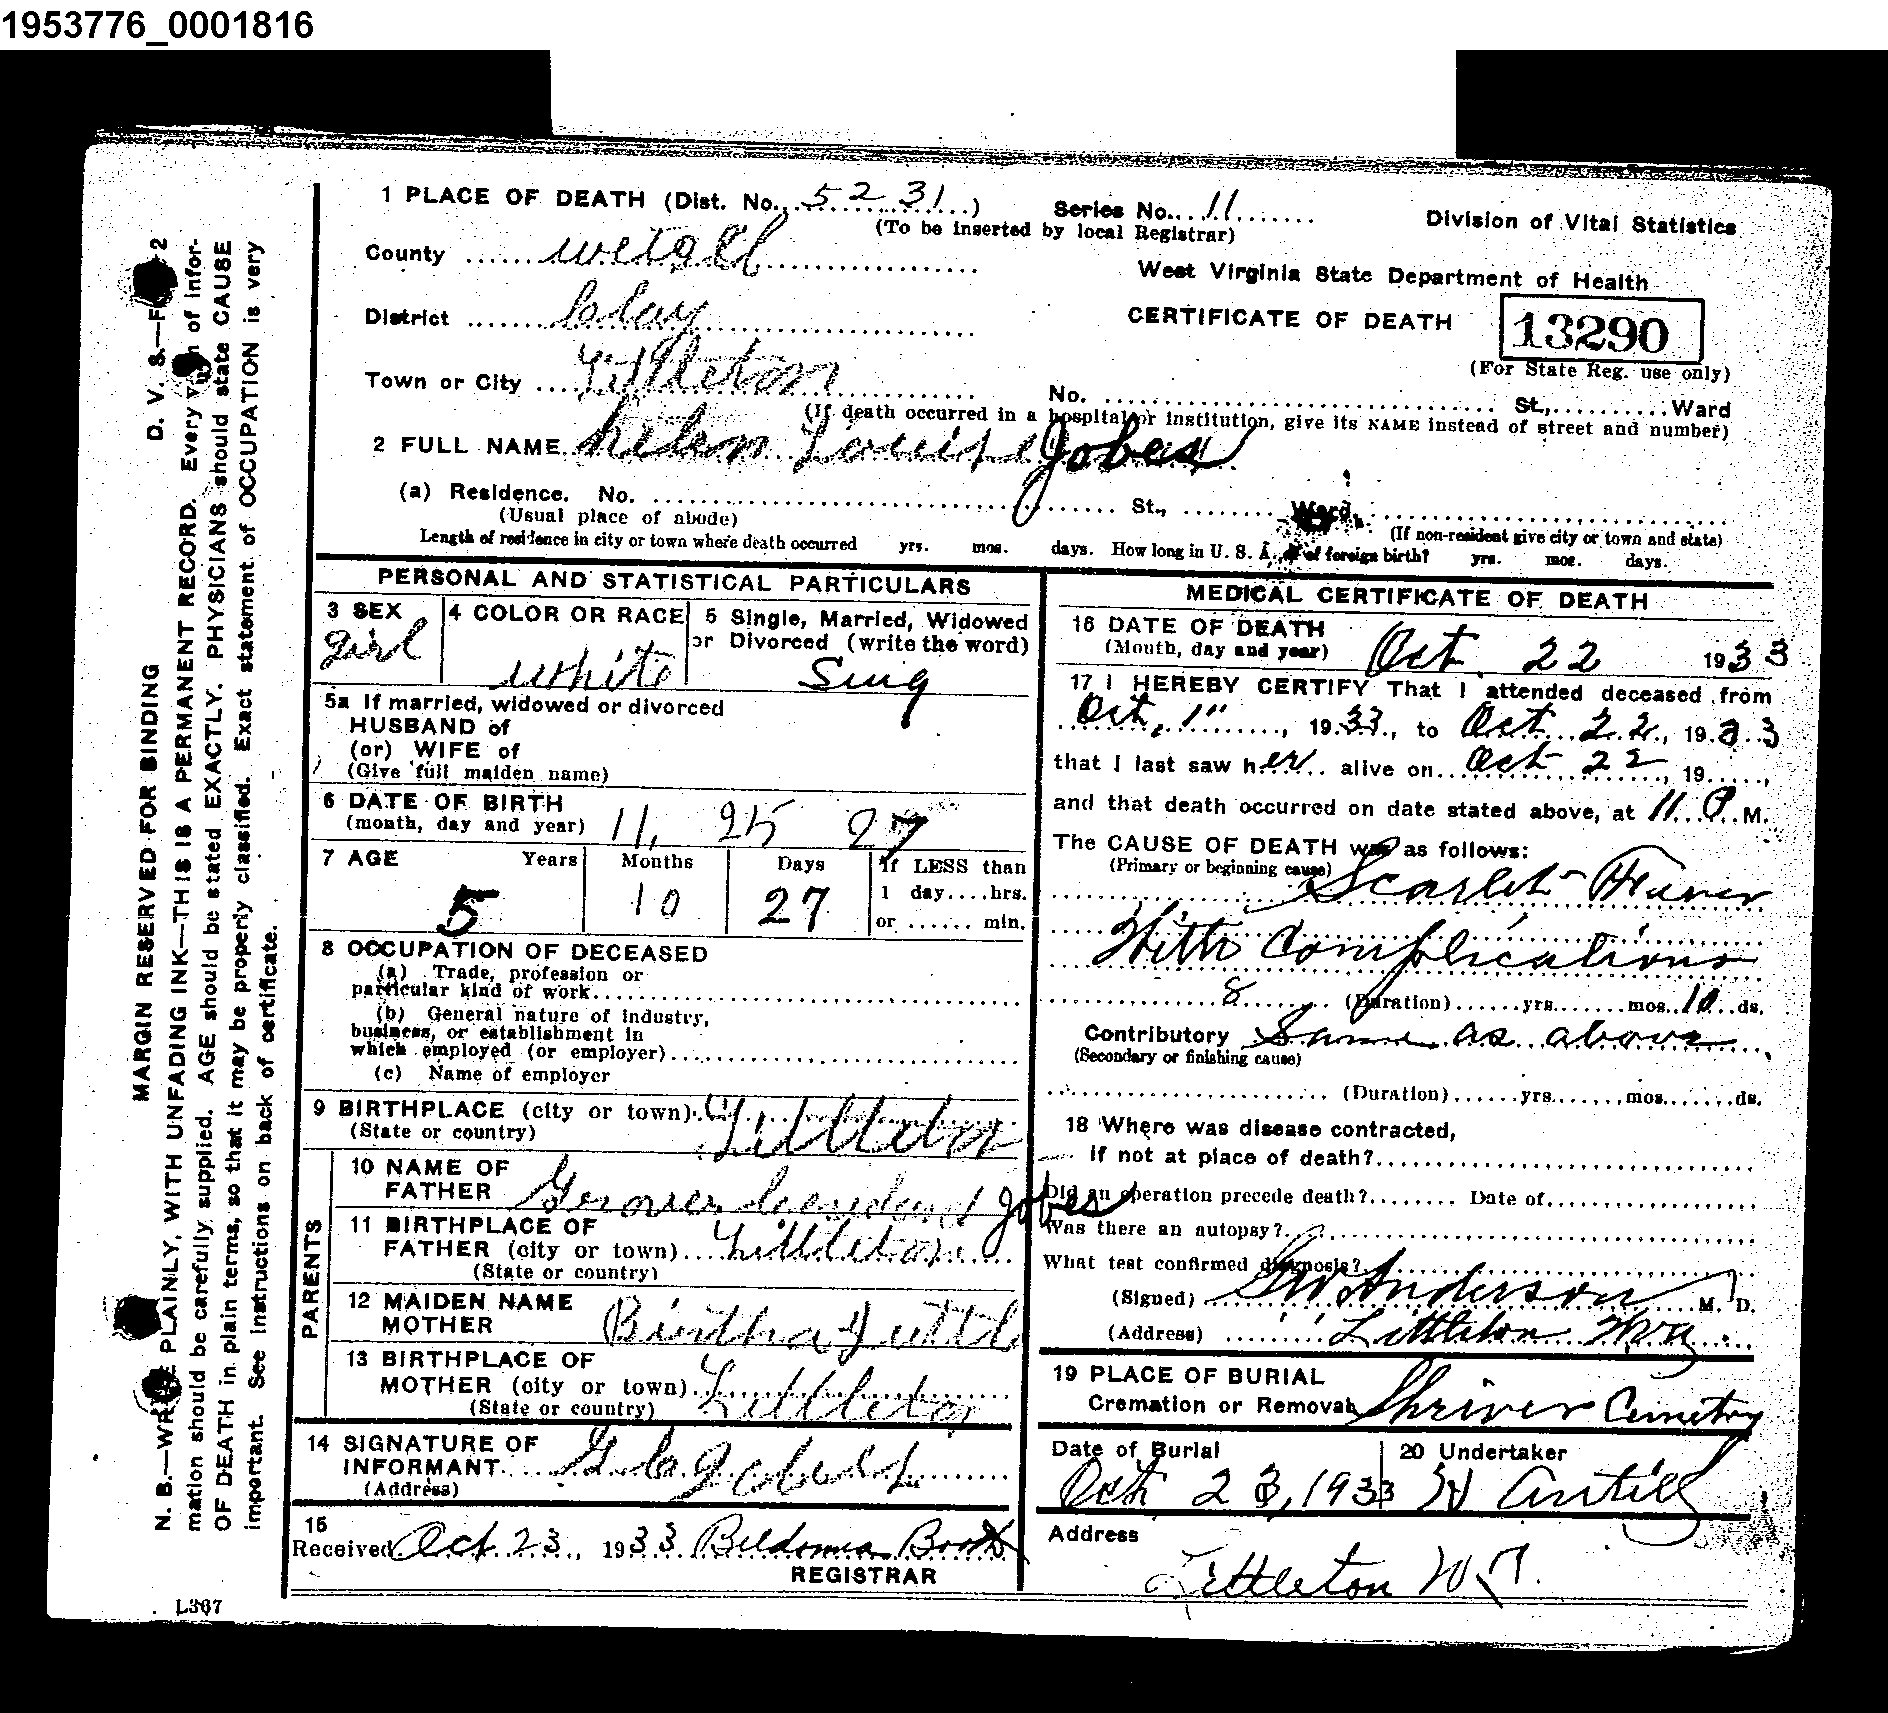 1953776_0001816
1 PLACE OF DEATH (Dist. No. 5231)
Series No. 11
(To be inserted by local Registrar)
Division of Vital Statistics
West Virginia State Department of Health
CERTIFICATE OF DEATH
13290
(For State Reg. use only)
County Wetzell
District Clay
Town or City Littleton
No. St., Ward
(If death occurred in a hospital or institution, give its NAME instead of street and number)
2 FULL NAME Helen Louise Jobes
(a) Residence. No. St., Ward.
(Usual place of abode)
(If non-resident give city or town and state)
Length of residence in city or town where death occurred yrs. mos. days. How long in U. S. A., if of foreign birth? yrs. mos. days.
PERSONAL AND STATISTICAL PARTICULARS
3 SEX
girl
4 COLOR OR RACE
White
5 Single, Married, Widowed
or Divorced (write the word)
Sing
5a If married, widowed or divorced
HUSBAND of
(or) WIFE of
(Give full maiden name)
6 DATE OF BIRTH
(month, day and year) 11, 25 27
7 AGE Years Months Days If LESS than
1 day....hrs.
or ...... min.
5 10 27
8 OCCUPATION OF DECEASED
(a) Trade, profession or
particular kind of work
(b) General nature of industry,
business, or establishment in
which employed (or employer)
(c) Name of employer
9 BIRTHPLACE (city or town) Littleton
(State or country)
PARENTS
10 NAME OF
FATHER Grover Jobes
11 BIRTHPLACE OF
FATHER (city or town) Littleton
(State or country)
12 MAIDEN NAME
MOTHER
13 BIRTHPLACE OF
MOTHER (city or town) Littleton
(State or country)
14 SIGNATURE OF
INFORMANT G. C. Jobes
(Address)
15
Received Oct 23, 1933
REGISTRAR
MEDICAL CERTIFICATE OF DEATH
16 DATE OF DEATH
(Month, day and year) Oct. 22 1933
17 I HEREBY CERTIFY That I attended deceased from
Oct, 1", 1933, to Oct 22, 1933
that I last saw her alive on Oct 22, 19
and that death occurred on date stated above, at 11 P. M.
The CAUSE OF DEATH was as follows:
(Primary or beginning cause) Scarlet Fever
With Complications
8 (Duration) yrs. mos. 10 ds.
Contributory Same as above
(Secondary or finishing cause)
(Duration) yrs. mos. ds.
18 Where was disease contracted,
if not at place of death?
Did an operation precede death? Date of
Was there an autopsy?
What test confirmed diagnosis?
(Signed) GW Anderson M. D.
(Address) Littleton W Va.
19 PLACE OF BURIAL
Cremation or Removal Shriver Cemetry
Date of Burial
Oct 23, 1933
20 Undertaker
Antill
Address
Littleton W V.
MARGIN RESERVED FOR BINDING
D. V. S.
N. B.—WRITE PLAINLY, WITH UNFADING INK—THIS IS A PERMANENT RECORD. Every item of infor-
mation should be carefully supplied. AGE should be stated EXACTLY. PHYSICIANS should state CAUSE
OF DEATH in plain terms, so that it may be properly classified. Exact statement of OCCUPATION is very
important. See instructions on back of certificate.
L367